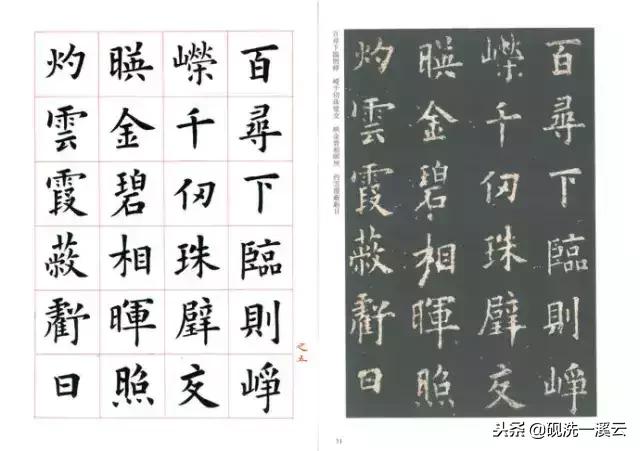 百尋下臨則崢
嶸千仞珠璧交
暎金碧相暉照
灼雲霞蔽虧日
之五
百尋下臨則崢 嶸千仞珠璧交 映金碧相暉照 灼雲霞蔽虧日
百尋下臨則崢
嶸千仞珠璧交
暎金碧相暉照
灼雲霞蔽虧日
头条@砚洗一溪云